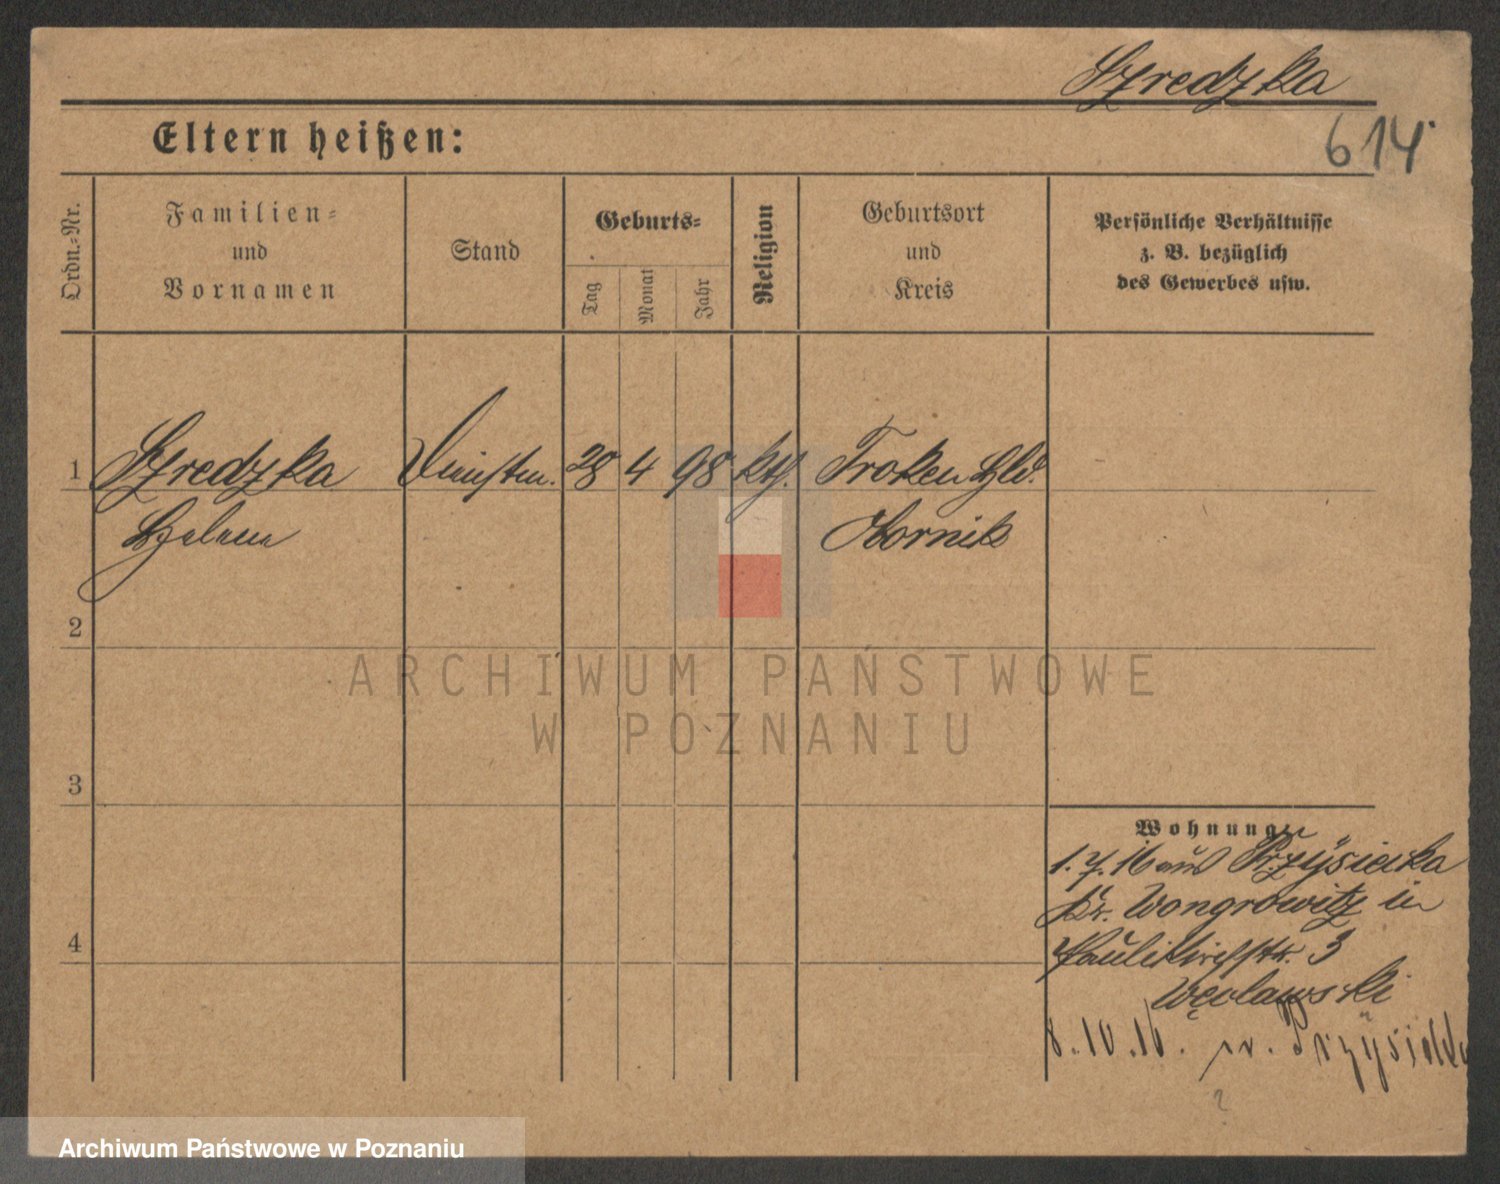 Szredzka
614.
Eltern heißen:
Ordn.-Nr.
Familien-
und
Vornamen
Stand
Geburts-
Tag
Monat
Jahr
Religion
Geburtsort
und
Kreis
Persönliche Verhältnisse
z. B. bezüglich
des Gewerbes usw.
1 Szredzka 28 4 98 kth. Hld.
Helena Kornik
2
ARCHIWUM PAŃSTWOWE
W POZNANIU
3
Wohnung
1. 7. 16 aus Przysieka
Kr. Wongrowitz in
Paulikirchstr. 3
Węclawski
8.10.16. n. Przysieka
4
Archiwum Państwowe w Poznaniu